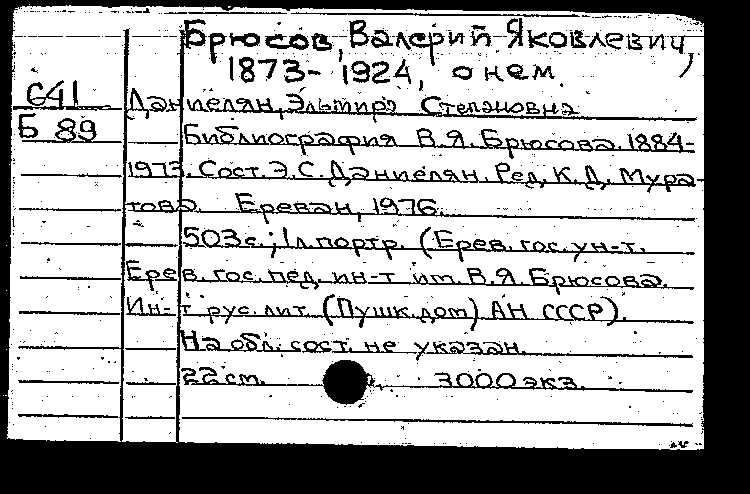 Брюсов, Валерий Яковлевич,
1873-1924, о нем.
641
Б 89
Даниелян, Эльмира Степановна
Библиография В.Я. Брюсова. 1884-
1973. Сост. Э.С. Даниелян. Ред. К.Д. Мура-
това. Ереван, 1976.
503 с.; 1 л. портр. (Ерев. гос. ун-т.
Ерев. гос. пед. ин-т им. В.Я. Брюсова.
Ин-т рус. лит. (Пушк. дом) АН СССР).
На обл. сост. не указан.
22 см. 3000 экз.